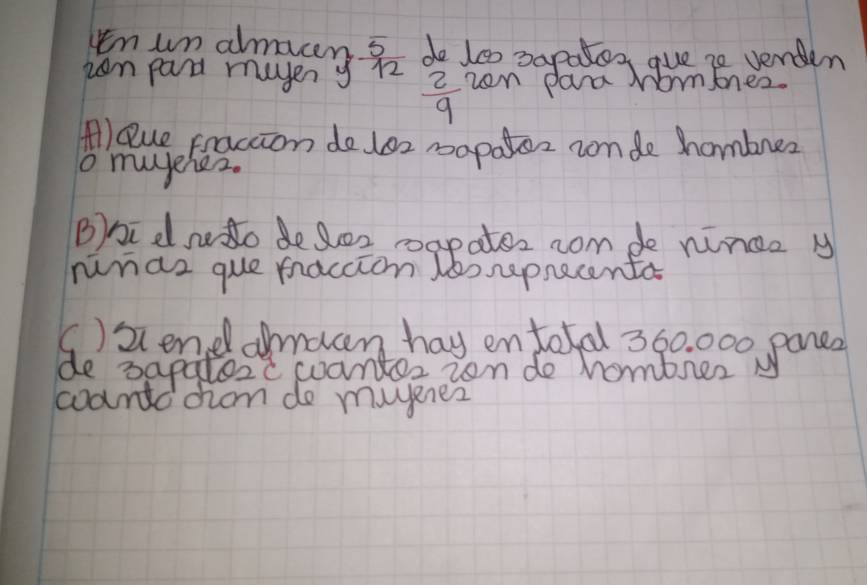 en un almacen 5/12 de los zapatos que se venden
son para mujer y 2/9 son para hombres.
A) Que fraccion de los zapatos son de hombres
o mujeres.
B) si el resto de los zapatos son de niños y
niñas que fraccion los reprecenta.
C) si en el almacen hay en total 360.000 pares
de zapatos ¿ cuantos son de hombres y
cuanto son de mujeres